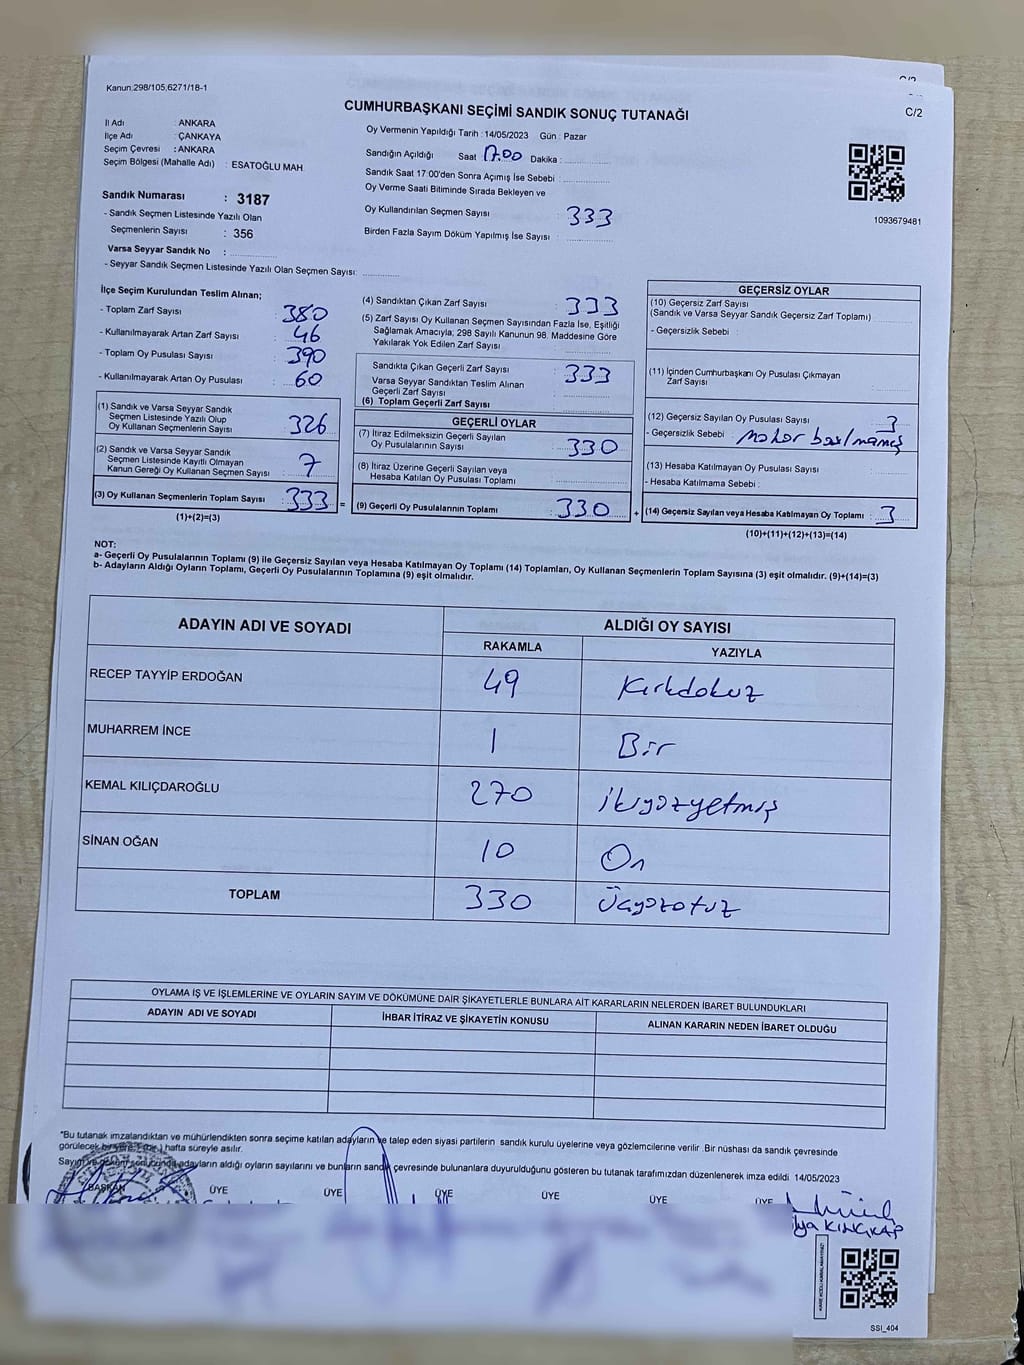 Kanun.298/105,6271/18-1
CUMHURBAŞKANI SEÇİMİ SANDIK SONUÇ TUTANAĞI
C/2
İl Adı : ANKARA
İlçe Adı : ÇANKAYA
Seçim Çevresi : ANKARA
Seçim Bölgesi (Mahalle Adı) : ESATOĞLU MAH
Sandık Numarası : 3187
- Sandık Seçmen Listesinde Yazılı Olan
Seçmenlerin Sayısı : 356
Varsa Seyyar Sandık No :
- Seyyar Sandık Seçmen Listesinde Yazılı Olan Seçmen Sayısı:
Oy Vermenin Yapıldığı Tarih :14/05/2023 Gün : Pazar
Sandığın Açıldığı Saat 17.00 Dakika :
Sandık Saat 17:00'den Sonra Açımış İse Sebebi :
Oy Verme Saati Bitiminde Sırada Bekleyen ve
Oy Kullandırılan Seçmen Sayısı : 333
Birden Fazla Sayım Döküm Yapılmış İse Sayısı :
1093679481
İlçe Seçim Kurulundan Teslim Alınan;
- Toplam Zarf Sayısı : 380
- Kullanılmayarak Artan Zarf Sayısı : 46
- Toplam Oy Pusulası Sayısı : 390
- Kullanılmayarak Artan Oy Pusulası : 60
(1) Sandık ve Varsa Seyyar Sandık
Seçmen Listesinde Yazılı Olup
Oy Kullanan Seçmenlerin Sayısı : 326
(2) Sandık ve Varsa Seyyar Sandık
Seçmen Listesinde Kayıtlı Olmayan
Kanun Gereği Oy Kullanan Seçmen Sayısı : 7
(3) Oy Kullanan Seçmenlerin Toplam Sayısı : 333 =
(1)+(2)=(3)
(4) Sandıktan Çıkan Zarf Sayısı : 333
(5) Zarf Sayısı Oy Kullanan Seçmen Sayısından Fazla İse, Eşitliği
Sağlamak Amacıyla; 298 Sayılı Kanunun 98. Maddesine Göre
Yakılarak Yok Edilen Zarf Sayısı :
Sandıkta Çıkan Geçerli Zarf Sayısı : 333
Varsa Seyyar Sandıktan Teslim Alınan
Geçerli Zarf Sayısı :
(6) Toplam Geçerli Zarf Sayısı :
GEÇERLİ OYLAR
(7) İtiraz Edilmeksizin Geçerli Sayılan
Oy Pusulalarının Sayısı : 330
(8) İtiraz Üzerine Geçerli Sayılan veya
Hesaba Katılan Oy Pusulası Toplamı :
(9) Geçerli Oy Pusulalarının Toplamı : 330 +
GEÇERSİZ OYLAR
(10) Geçersiz Zarf Sayısı
(Sandık ve Varsa Seyyar Sandık Geçersiz Zarf Toplamı)
- Geçersizlik Sebebi :
(11) İçinden Cumhurbaşkanı Oy Pusulası Çıkmayan
Zarf Sayısı :
(12) Geçersiz Sayılan Oy Pusulası Sayısı : 3
- Geçersizlik Sebebi : mohor basılmamış
(13) Hesaba Katılmayan Oy Pusulası Sayısı :
- Hesaba Katılmama Sebebi :
(14) Geçersiz Sayılan veya Hesaba Katılmayan Oy Toplamı : 3
(10)+(11)+(12)+(13)=(14)
NOT:
a- Geçerli Oy Pusulalarının Toplamı (9) ile Geçersiz Sayılan veya Hesaba Katılmayan Oy Toplamı (14) Toplamları, Oy Kullanan Seçmenlerin Toplam Sayısına (3) eşit olmalıdır. (9)+(14)=(3)
b- Adayların Aldığı Oyların Toplamı, Geçerli Oy Pusulalarının Toplamına (9) eşit olmalıdır.
ADAYIN ADI VE SOYADI
ALDIĞI OY SAYISI
RAKAMLA YAZIYLA
RECEP TAYYİP ERDOĞAN 49 Kırkdokuz
MUHARREM İNCE 1 Bir
KEMAL KILIÇDAROĞLU 270 ikiyüzyetmiş
SİNAN OĞAN 10 On
TOPLAM 330 Üçyüzotuz
OYLAMA İŞ VE İŞLEMLERİNE VE OYLARIN SAYIM VE DÖKÜMÜNE DAİR ŞİKAYETLERLE BUNLARA AİT KARARLARIN NELERDEN İBARET BULUNDUKLARI
ADAYIN ADI VE SOYADI İHBAR İTİRAZ VE ŞİKAYETİN KONUSU ALINAN KARARIN NEDEN İBARET OLDUĞU
*Bu tutanak imzalandıktan ve mühürlendikten sonra seçime katılan adayların ve talep eden siyasi partilerin sandık kurulu üyelerine veya gözlemcilerine verilir. Bir nüshası da sandık çevresinde
görülecek bir yere 1 (bir) hafta süreyle asılır.
Sayım ve döküm sonucunda adayların aldığı oyların sayılarını ve bunların sandık çevresinde bulunanlara duyurulduğunu gösteren bu tutanak tarafımızdan düzenlenerek imza edildi. 14/05/2023
BAŞKAN ÜYE ÜYE ÜYE ÜYE ÜYE ÜYE
SSI_404